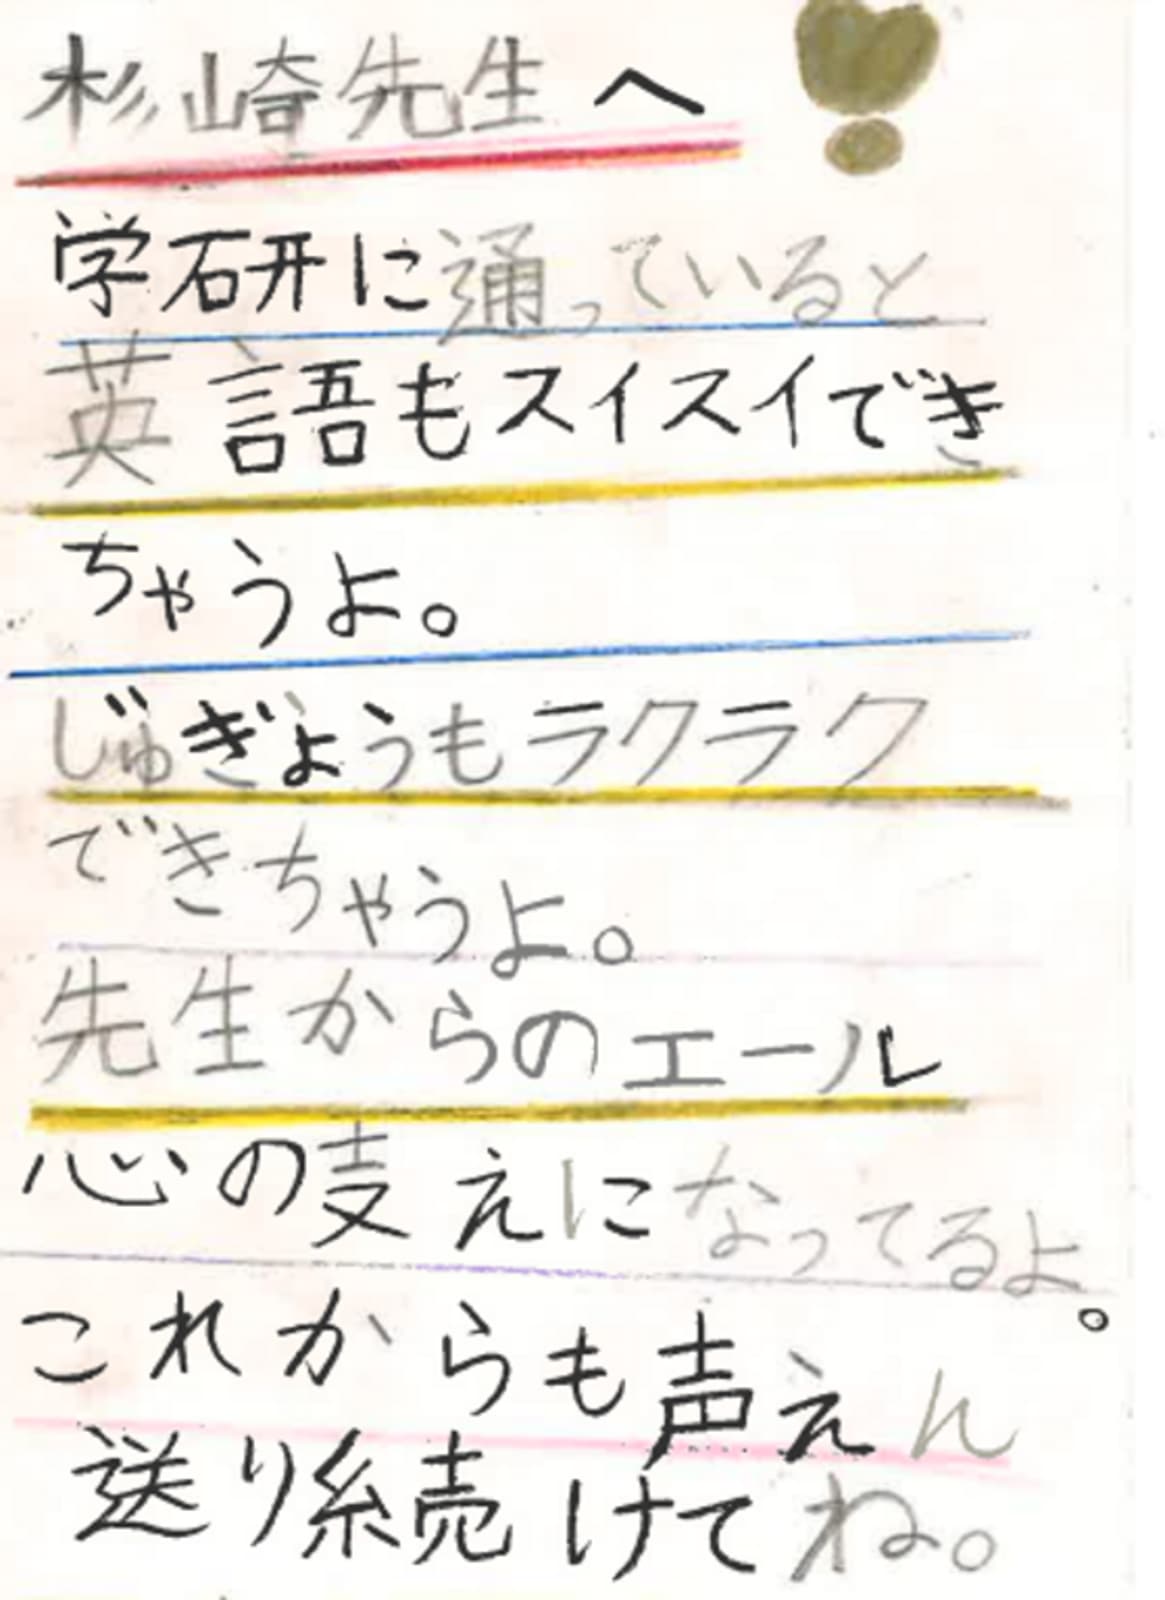 杉崎先生へ
学研に通っていると
英語もスイスイでき
ちゃうよ。
じゅぎょうもラクラク
できちゃうよ。
先生からのエール
心の支えになってるよ。
これからも声えん
送り続けてね。